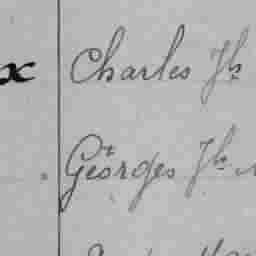 x Charles Jh
Georges Jh